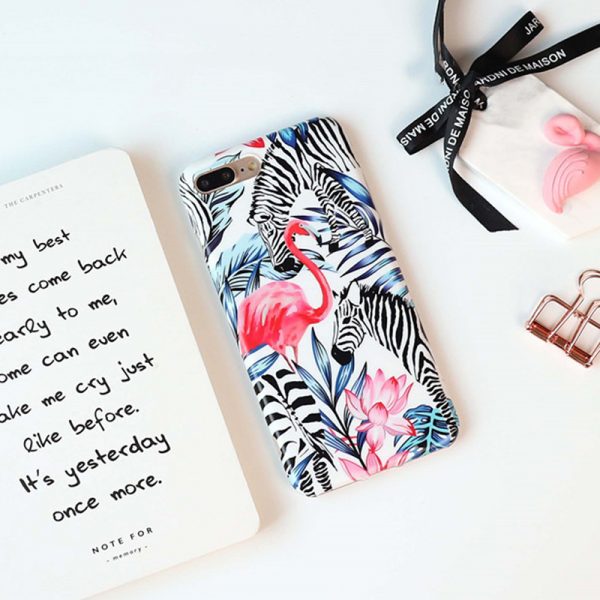 THE CARPENTERS
my best
es come back
early to me,
ome can even
ake me cry just
like before.
It's yesterday
once more.
NOTE FOR
- memory -
JAR
ARDNI DE MAISON
DNI DE MAISON
RDNI DE MAIS